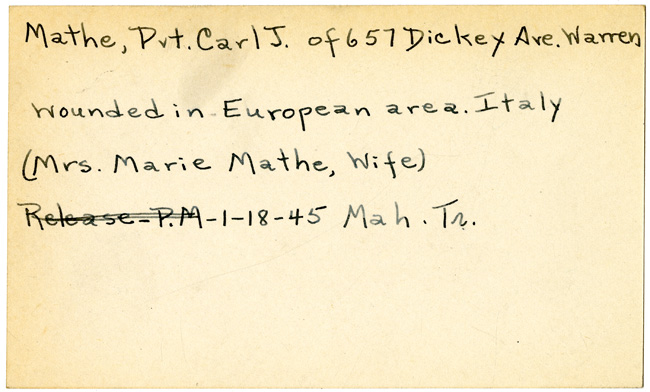 Mathe, Pvt. Carl J. of 657 Dickey Ave. Warren
wounded in European area. Italy
(Mrs. Marie Mathe, Wife)
Release-P.M-1-18-45 Mah. Tr.